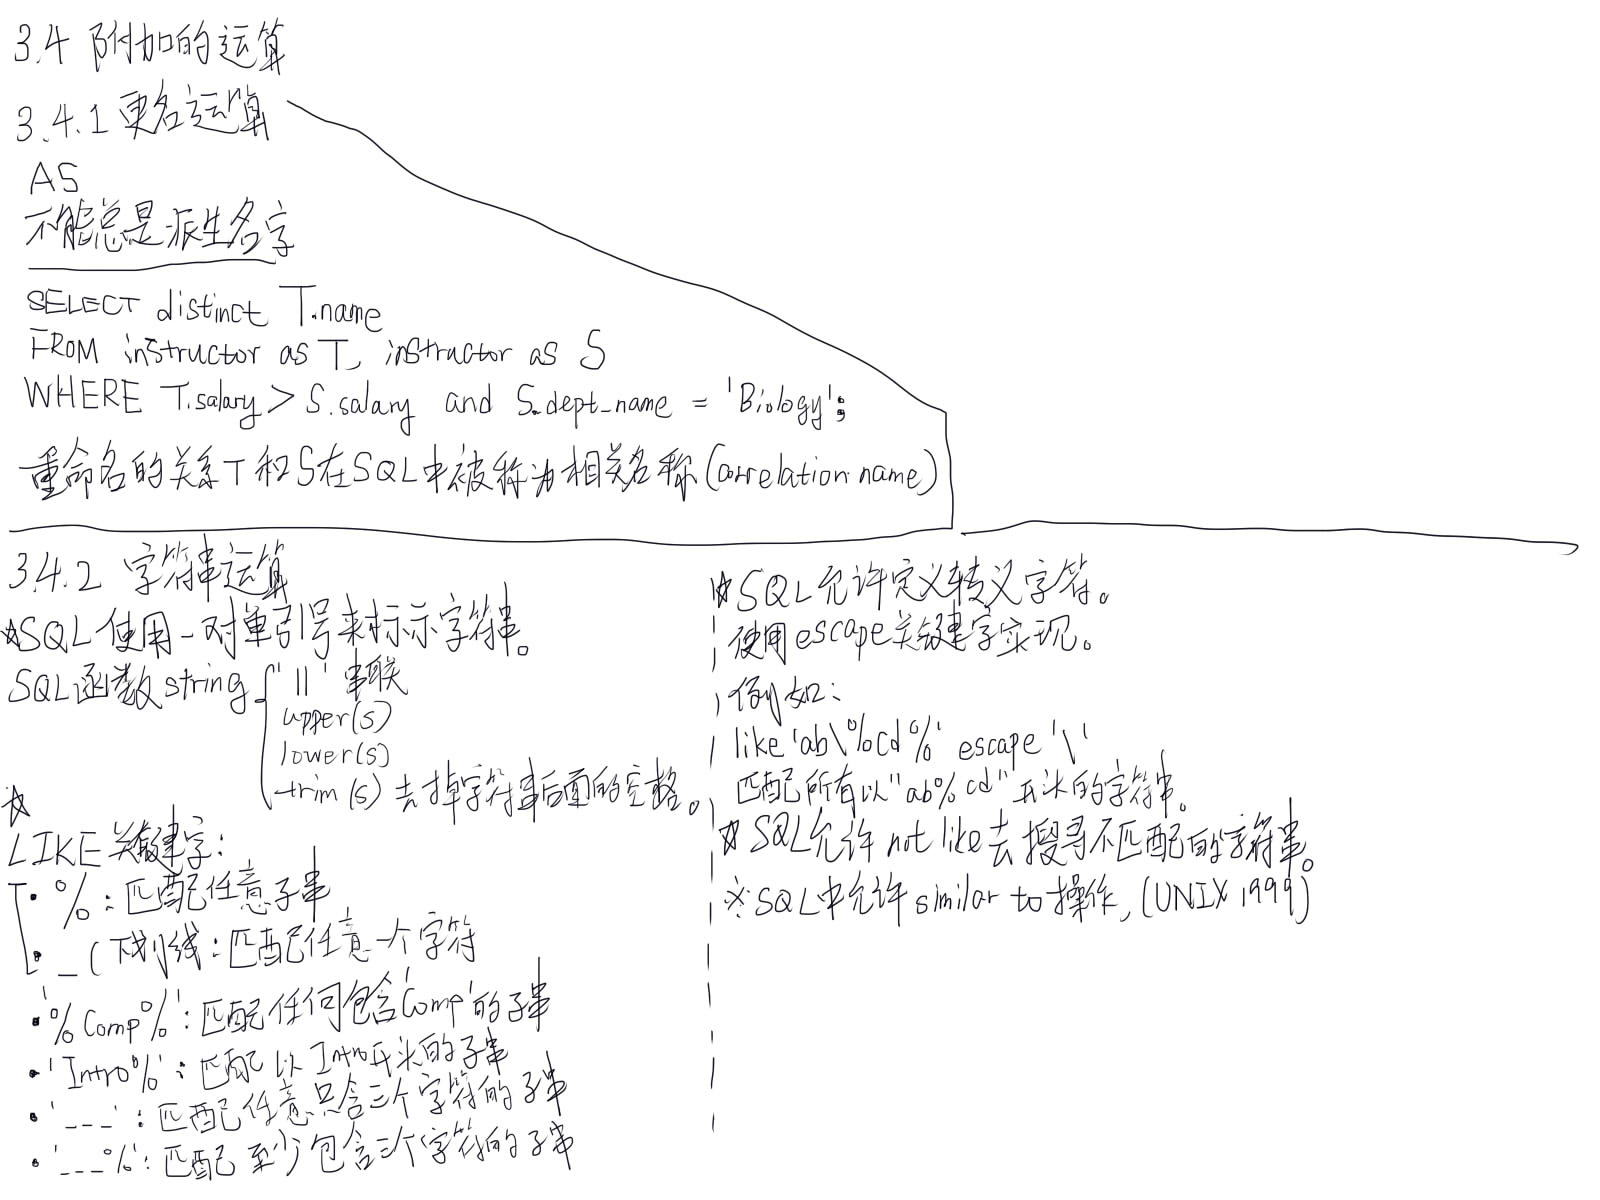 3.4 附加的运算
3.4.1 更名运算
AS
不能总是派生名字
SELECT distinct T.name
FROM instructor as T, instructor as S
WHERE T.salary > S.salary and S.dept_name = 'Biology';
重命名的关系T和S在SQL中被称为相关名称(correlation name)
3.4.2 字符串运算
☆SQL使用一对单引号来标示字符串。
SQL函数string { '||' 串联
upper(s)
lower(s)
trim(s) 去掉字符串后面的空格。
☆
LIKE关键字:
· % : 匹配任意子串
· _ (下划线: 匹配任意一个字符
· '%Comp%' : 匹配任何包含'Comp'的子串
· 'Intro%' : 匹配以Intro开头的子串
· '___' : 匹配任意只含三个字符的子串
· '___%' : 匹配至少包含三个字符的子串
☆SQL允许定义转义字符。
使用escape关键字实现。
例如:
like 'ab\%cd%' escape '\'
匹配所有以"ab%cd"开头的字符串。
☆SQL允许not like去搜寻不匹配的字符串。
※SQL中允许similar to操作, (UNIX 1999)